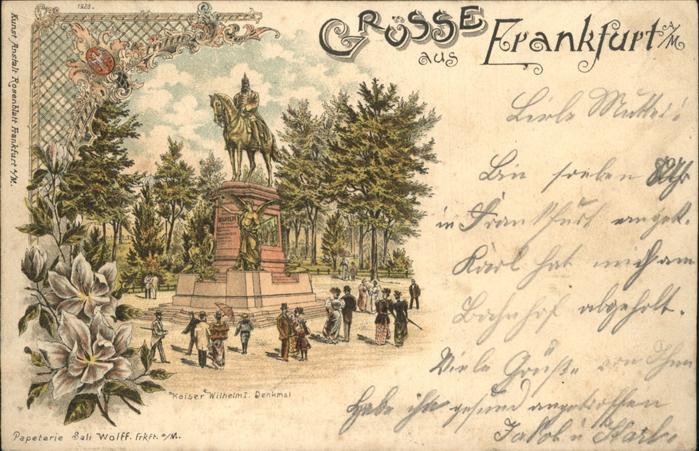 1928.
GRÜSSE
aus Frankfurt A/M
Kunst Anstalt Rosenblatt Frankfurt a/M.
Liebe Mutter!
Bin soeben 8 Uhr
in Frankfurt angek.
Karl hat mich am
Bahnhof abgeholt.
Viele Grüße von Ihm
Habe ihn gesund angetroffen
Jakob u Karl.
Kaiser Wilhelm I. Denkmal
Papeterie Sali Wolff. Frkft. a/M.